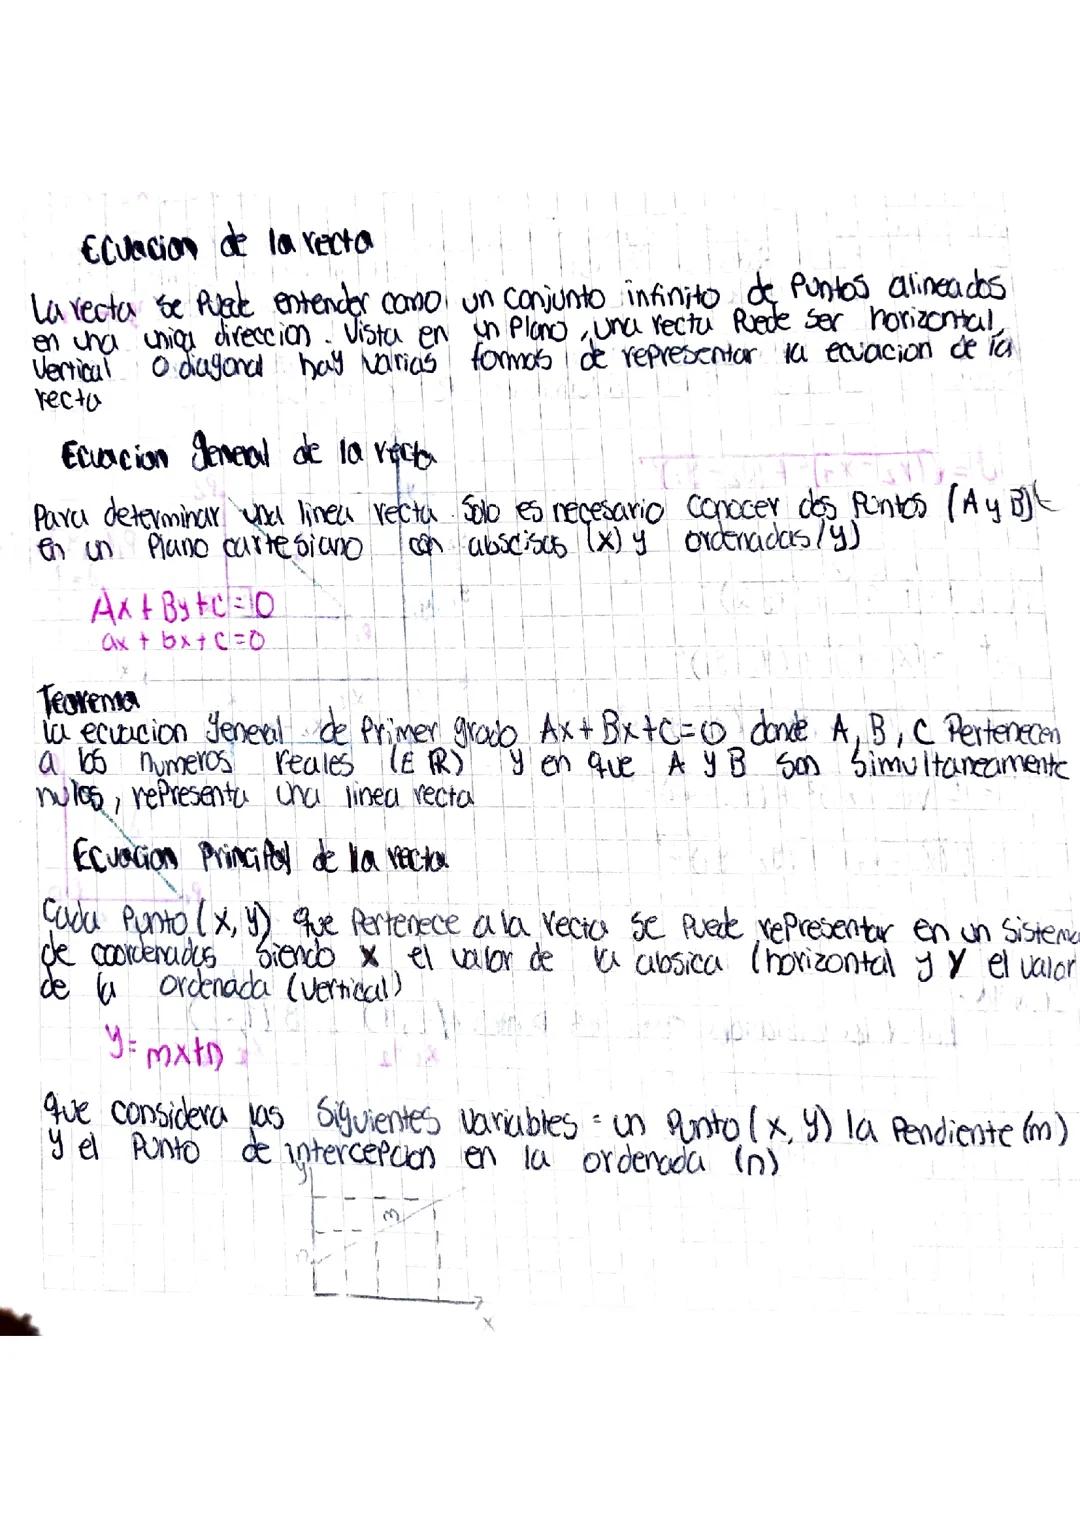 Ecuacion de la recta
La recta se Puede entender como un conjunto infinito de Puntos alineados
en una unica direccion. Vista en un Plano, una recta Puede ser horizontal,
Vertical o diagonal hay varias formas de representar la ecuacion de la
recta
Ecuacion general de la recta
Para determinar una linea recta Solo es necesario conocer dos Puntos (A y B)
en un Plano cartesiano con abscisas (x) y ordenadas (y)
Ax + By + C = 0
ax + bx + c = 0
Teorema
la ecuacion general de Primer grado Ax + Bx + C = 0 donde A, B, C Pertenecen
a los numeros reales (E R) y en que A y B son Simultaneamente
nulos, rePresenta una linea recta
Ecuacion Principal de la recta
Cada Punto (x, y) que Pertenece a la recta se Puede rePresentar en un Sistema
de coordenadas Siendo x el valor de la absica (horizontal y y el valor
de la ordenada (vertical)
y = mx + n
que considera las Siguientes variables = un Punto (x, y) la Pendiente (m)
y el Punto de intercepcion en la ordenada (n)
y
m
n
x